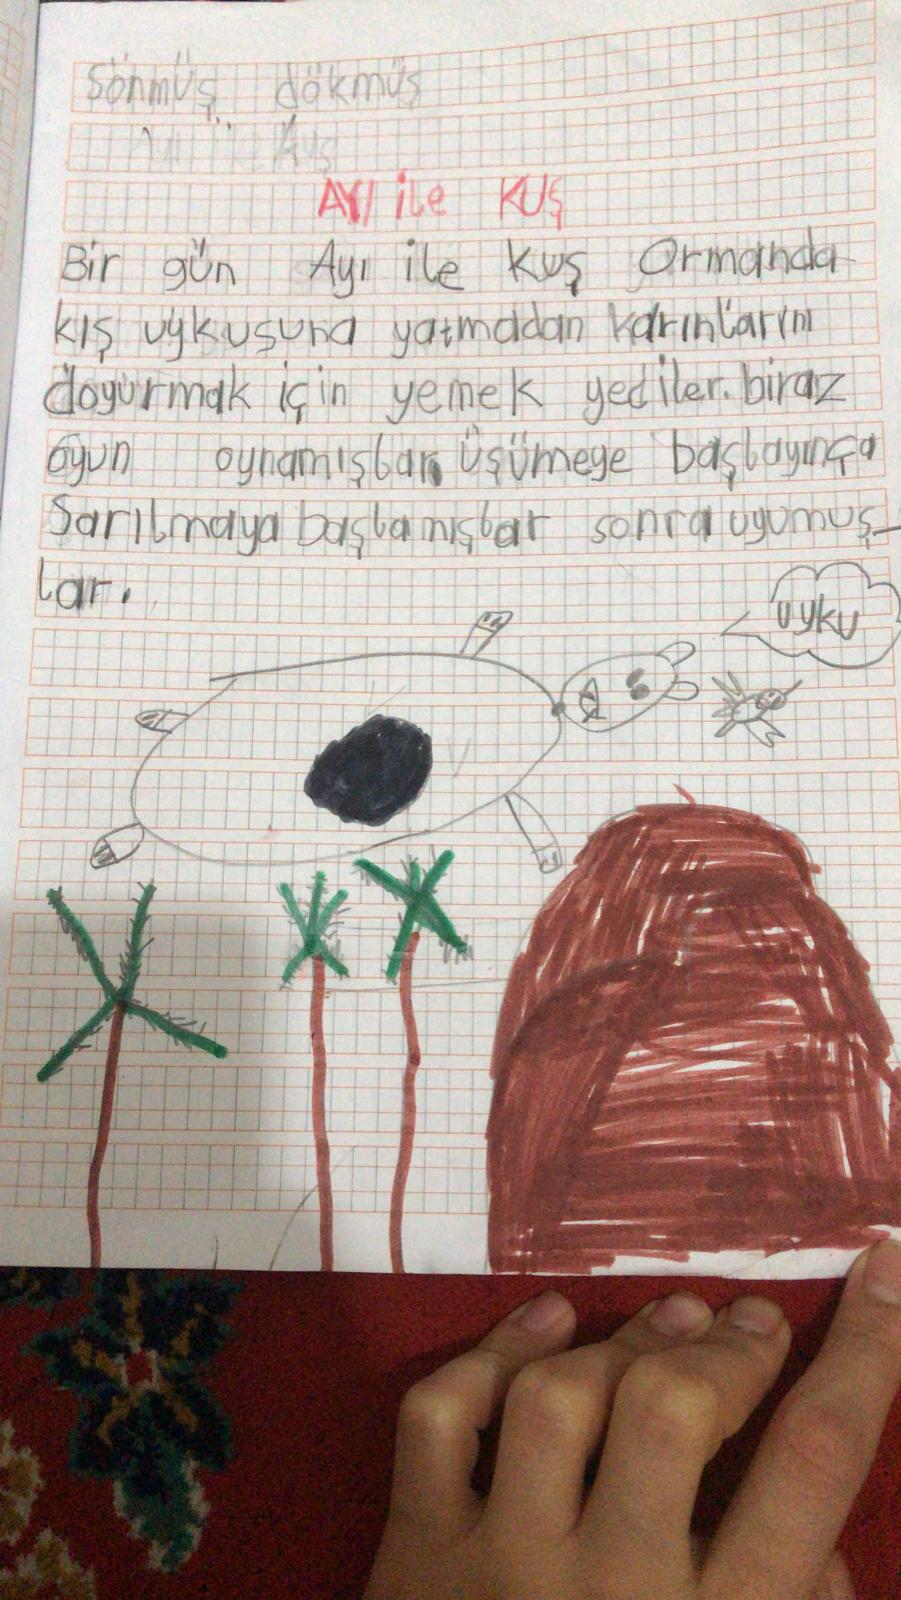 sönmüş dökmüş
Ayı ile Kuş
AYI ile KUŞ
Bir gün Ayı ile Kuş Ormanda
kış uykusuna yatmadan karınlarını
doyurmak için yemek yediler. biraz
oyun oynamışlar. Üşümeye başlayınça
Sarılmaya başlamışlar sonra uyumuş-
lar.
uyku